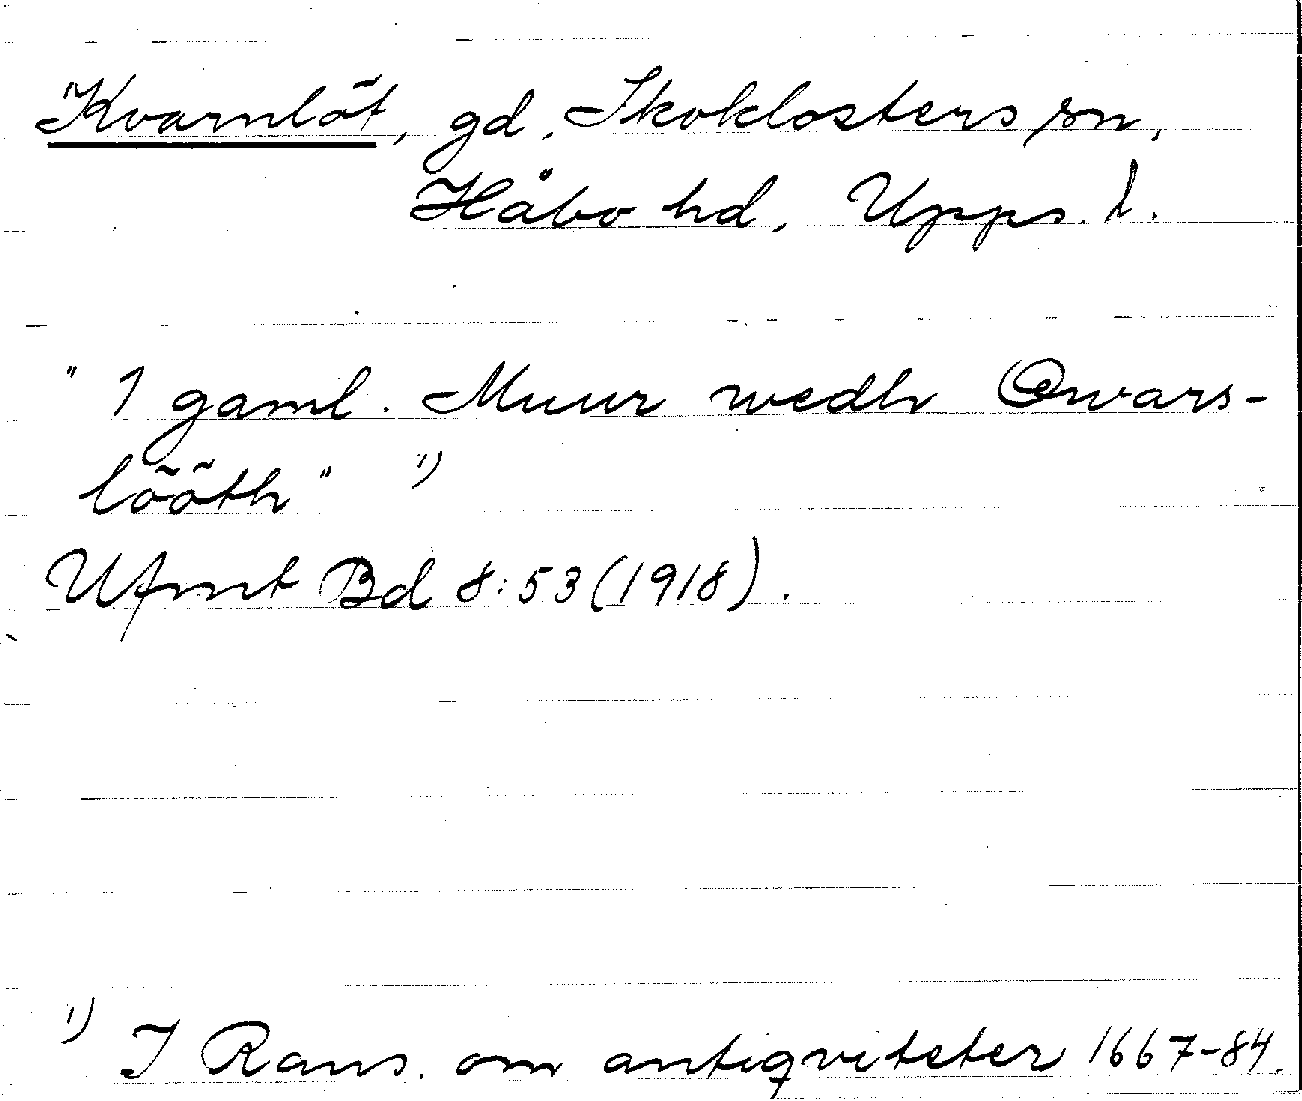 Kvarnlöt, gd, Skoklosters sn,
Håbo hd, Upps. l.
"1 gaml. Muur wedh Qwars-
lööth" 1)
Ufmt Bd 8:53 (1918).
1) I Rans. om antiqviteter 1667-84.